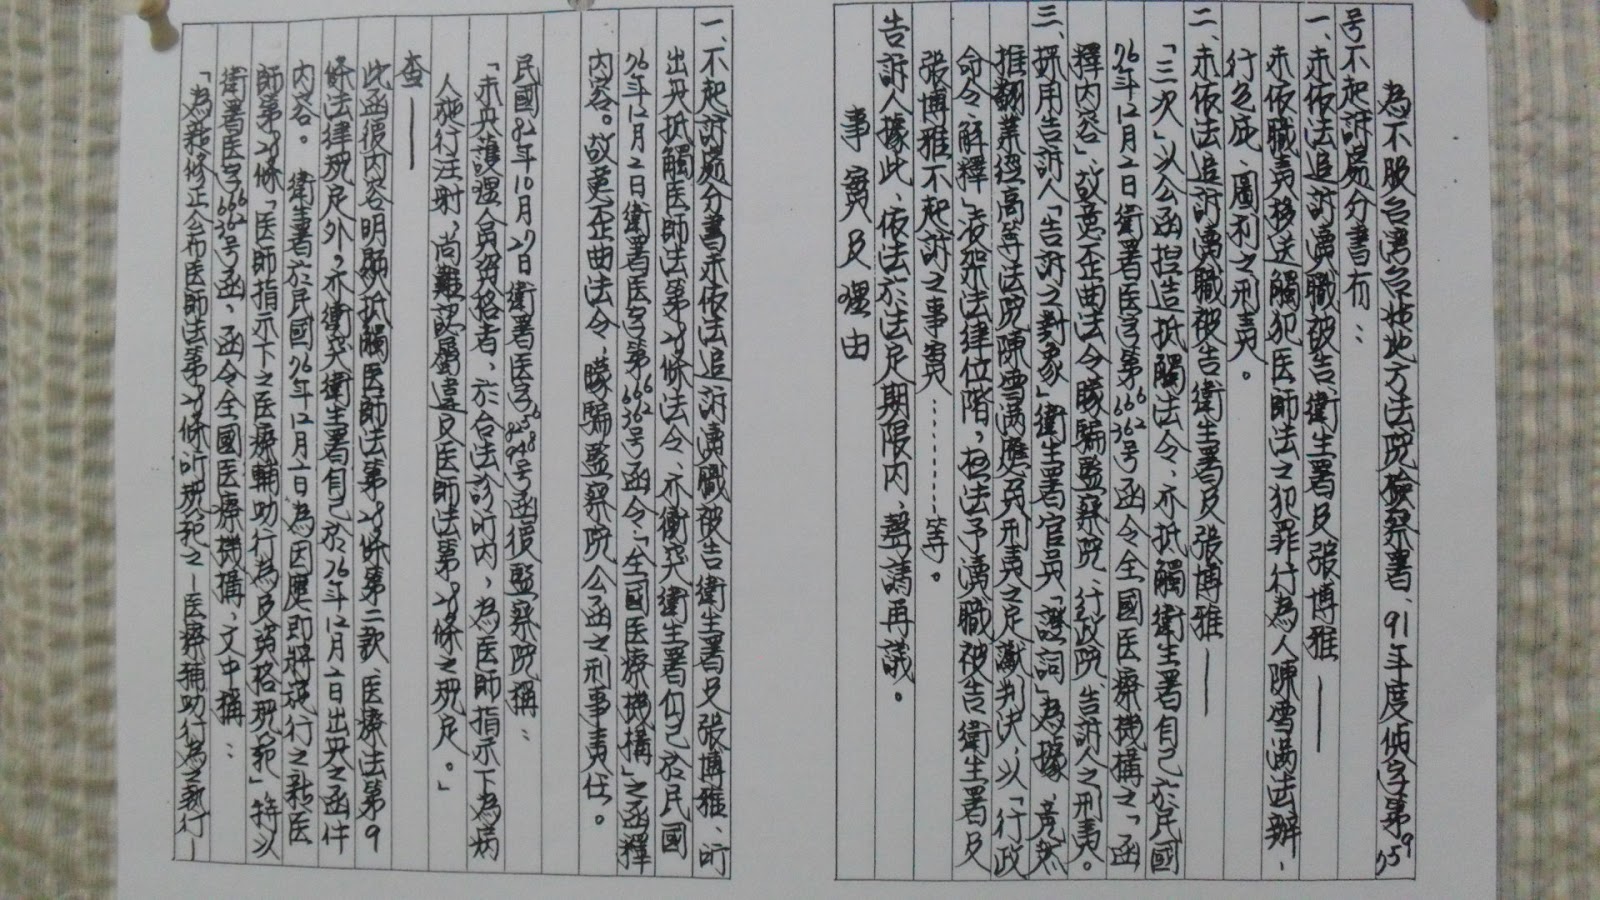 為不服台湾台北地方法院檢察署、91年度偵字第
号不起訴處分書有：
一、未依法追訴瀆職被告衛生署及張博雅——
未依職責移送觸犯医師法之犯罪行為人陳雪满法辦、
行包庇、圖利之刑責。
二、未依法追訴瀆職被告衛生署及張博雅——
「三次」以公函捏造抵觸法令、亦抵觸衛生署自己於民國
76年12月2日衛署医字第666362号函令全國医療機構之「函
釋内容」故意歪曲法令矇騙監察院、行政院、告訴人之刑責。
三、採用告訴人「告訴之對象」衛生署官員「證詞」為據、竟然
推翻業經高等法院陳雪满應負刑責之定讞判決、以「行政
命令、解釋」凌架法律位階，枉法予瀆職被告衛生署及
張博雅不起訴之事實………等。
告訴人據此、依法於法定期限内、聲請再議。
事實及理由
一、不起訴處分書未依法追訴瀆職被告衛生署及張博雅、所
出具抵觸医師法第28條法令、亦衝突衛生署自己於民國
76年12月2日衛署医字第666362号函令「全国医療機構」之函釋
内容。故意歪曲法令、矇騙監察院公函之刑事責任。
民國82年10月27日衛署医字 号函復監察院稱：
「未具護理人員資格者、於合法診所内，為医師指示下為病
人施行注射，尚難認屬違反医師法第28條之規定。」
查——
此函復内容明顯抵觸医師法第28條第二款、医療法第9
條法律規定外，亦衝突衛生署自己於76年12月2日出具之函件
内容。衛署於民國76年12月2日為因應即將施行之新医
師法第28條「医師指示下之医療輔助行為及資格規範」特以
衛署医字666362号函、函令全國医療機構、文中稱：
「為新修正公布医師法第28條所規範之—医療輔助行為之執行—